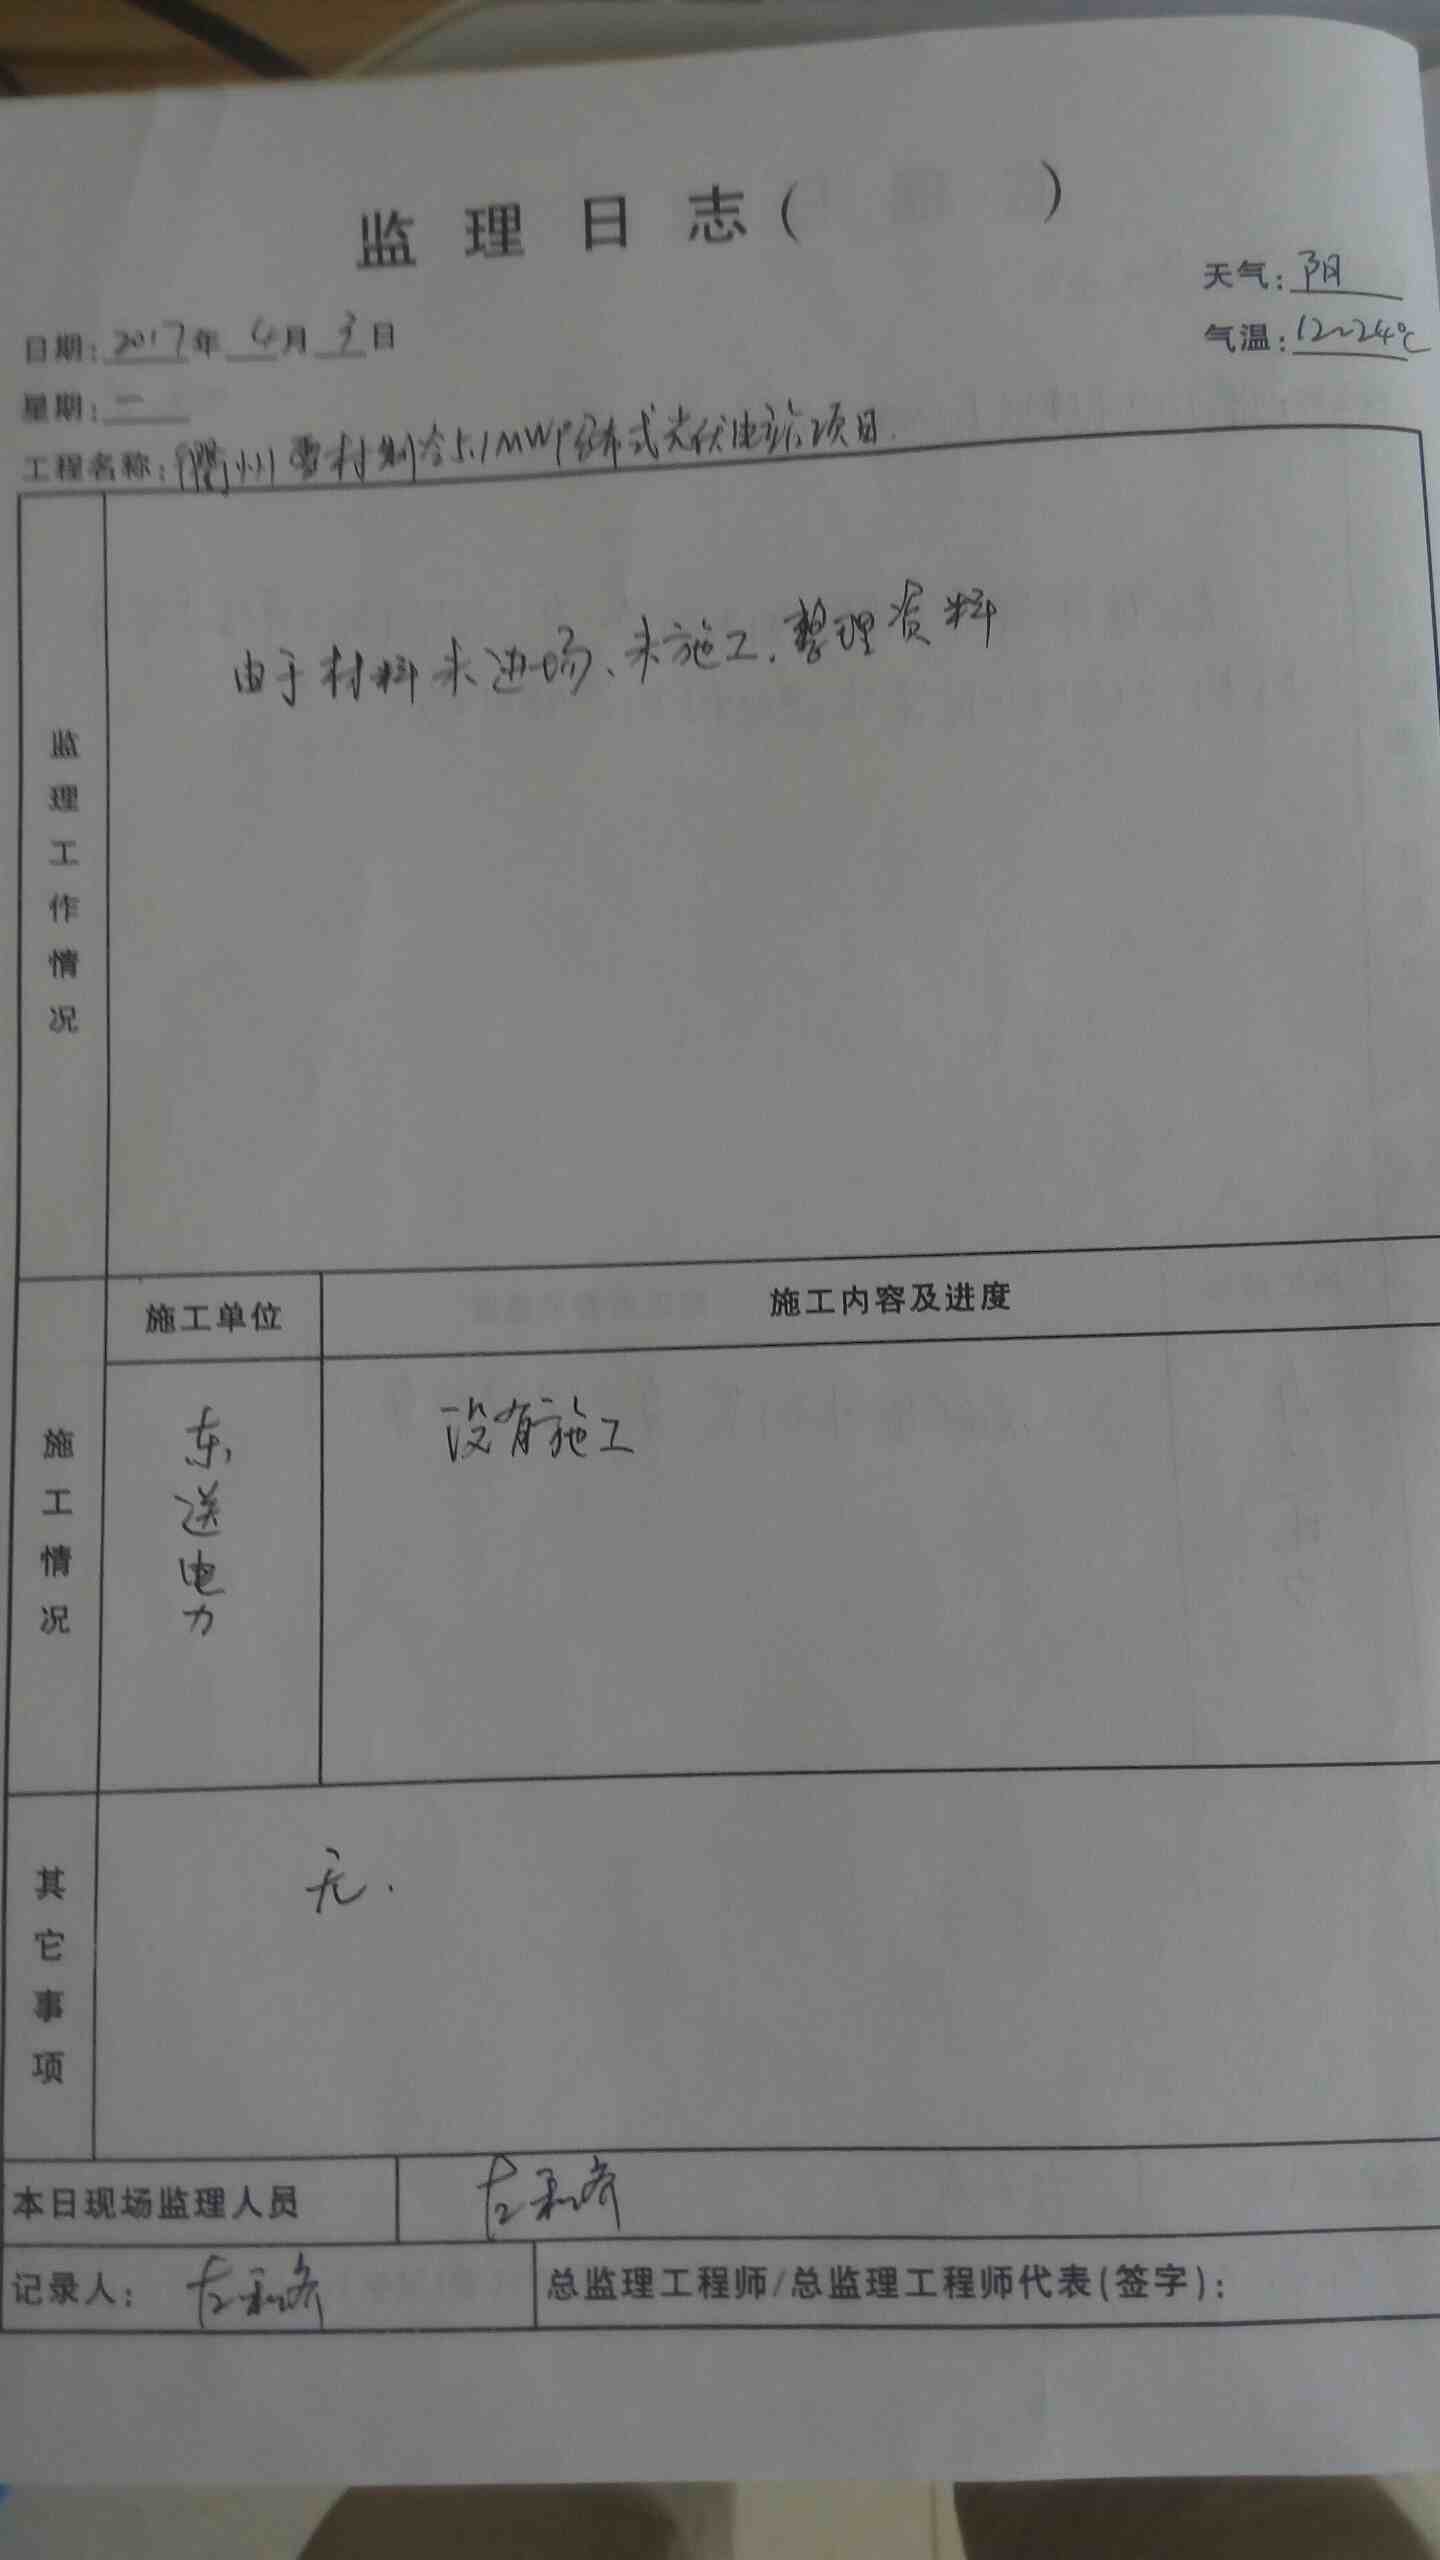 监理日志（ ）
天气：阴
日期：2017年4月3日
气温：12~24℃
星期：一
工程名称：衢州雪村制冷5.1MWP分布式光伏电站项目.
监理工作情况
由于材料未进场、未施工.整理资料
施工情况
施工单位
施工内容及进度
东送电力
没有施工
其它事项
无.
本日现场监理人员
记录人：
总监理工程师/总监理工程师代表（签字）：